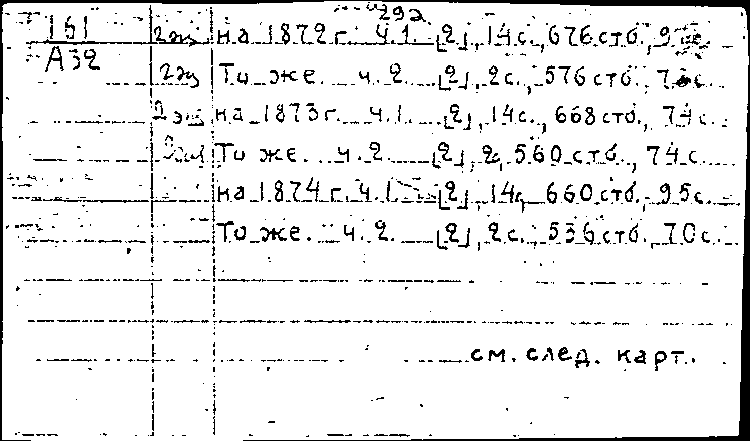 29а
161 2 экз на 1872 г. ч.1. [2], 14 с., 676 стб.,
А32 2 экз То же. ч.2. [2], 2 с., 576 стб.,
2 экз на 1873 г. ч.1. [2], 14 с., 668 стб., 74 с.
2 экз То же. ч.2. [2], 2, 560 стб., 74 с.
на 1874 г. ч.1. [2], 14, 660 стб., 95 с.
То же. ч.2. [2], 2 с., 536 стб., 70 с.
см. след. карт.